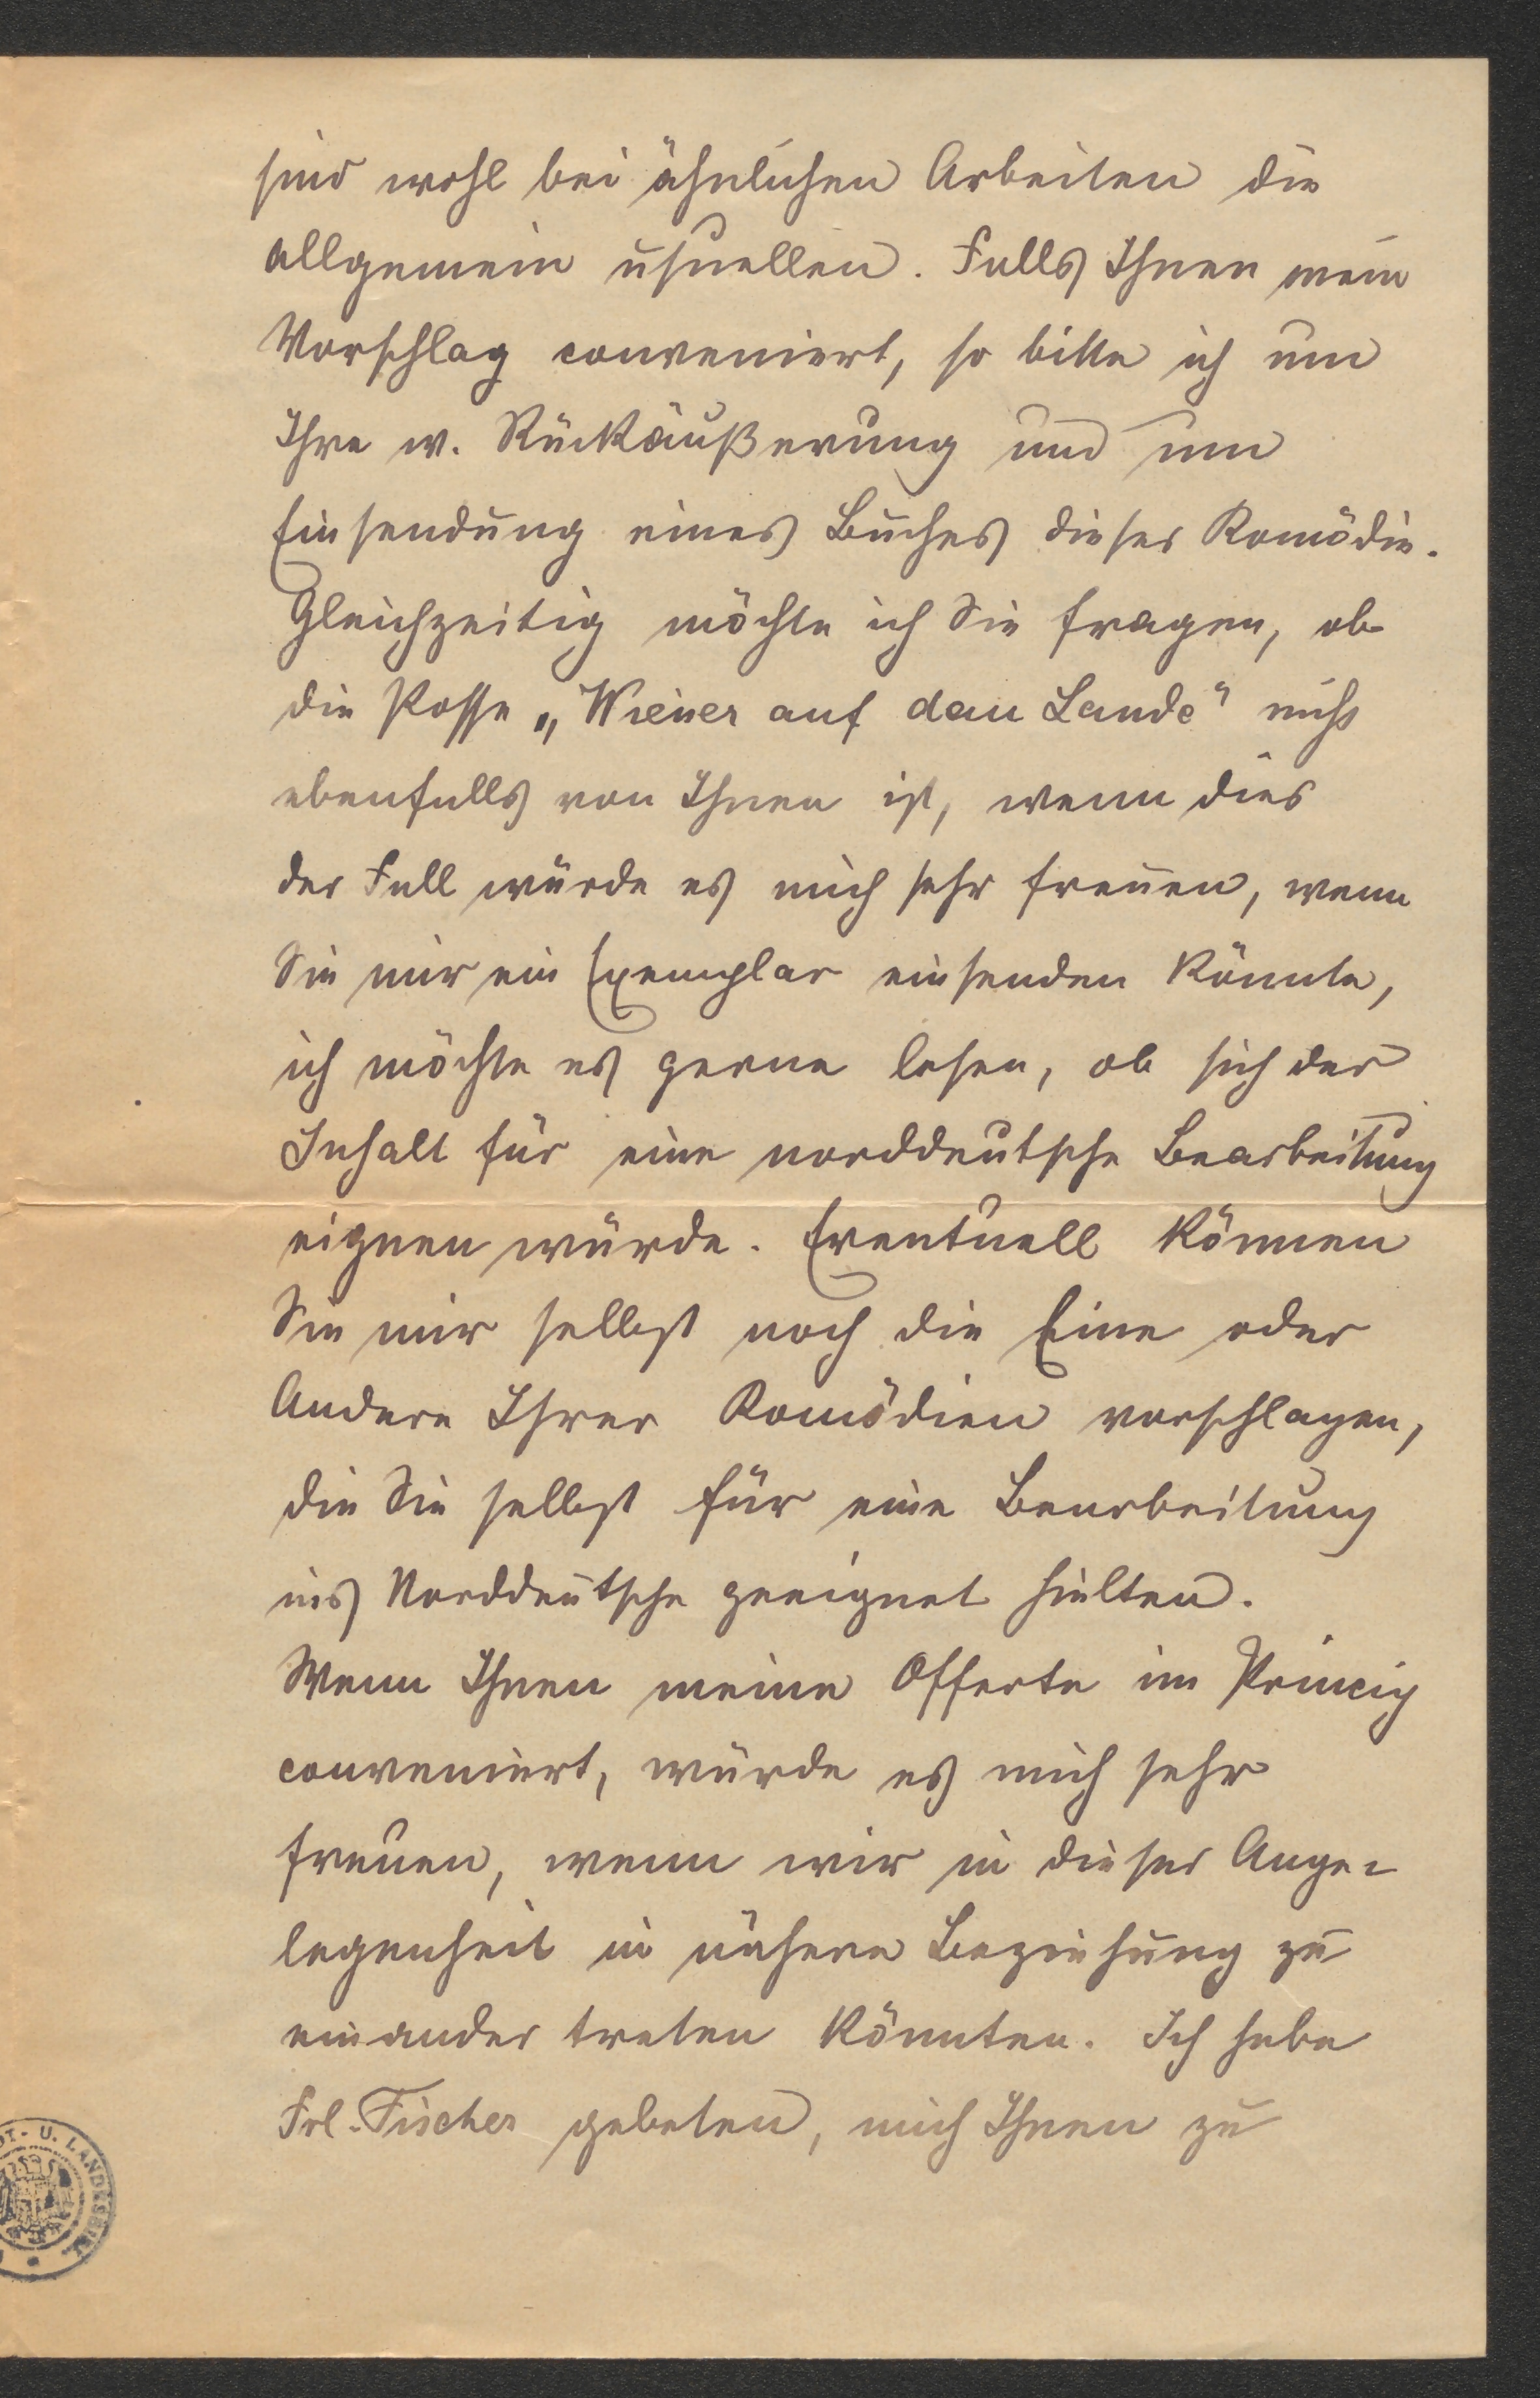 sind wohl bei ähnlichen Arbeiten die
allgemein usuellen. Falls Ihnen mein
Vorschlag conveniert, so bitte ich um
Ihre w. Rückäußerung und um
Einsendung eines Buches dieser Komödie.
Gleichzeitig möchte ich Sie fragen, ob
die Posse „Wiener auf dem Lande" nicht
ebenfalls von Ihnen ist, wenn dies
der Fall würde es mich sehr freuen, wenn
Sie mir ein Exemplar einsenden könnte,
ich möchte es gerne lesen, ob sich der
Inhalt für eine norddeutsche Bearbeitung
eignen würde. Eventuell können
Sie mir selbst noch die Eine oder
Andere Ihrer Komödien vorschlagen,
die Sie selbst für eine Bearbeitung
ins Norddeutsche geeignet hielten.
Wenn Ihnen meine Offerte im Princip
conveniert, würde es mich sehr
freuen, wenn wir in dieser Ange-
legenheit in nähere Beziehung zu
einander treten könnten. Ich habe
Frl. Fischer gebeten, mich Ihnen zu
DT- U. LANDESBIBL.